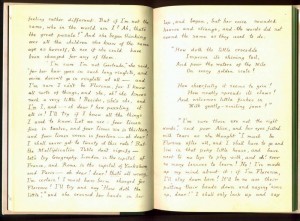 feeling rather different. But if I'm not the
same, who in the world am I? Ah, that's
the great puzzle!" And she began thinking
over all the children she knew of the same
age as herself, to see if she could have
been changed for any of them.
"I'm sure I'm not Gertrude," she said,
"for her hair goes in such long ringlets, and
mine doesn't go in ringlets at all — and
I'm sure I ca'n't be Florence, for I know
all sorts of things, and she, oh! she knows
such a very little! Besides, she's she, and
I'm I, and — oh dear! how puzzling it
all is! I'll try if I know all the things
I used to know. Let me see: four times
five is twelve, and four times six is thirteen,
and four times seven is fourteen — oh dear!
I shall never get to twenty at this rate! But
the Multiplication Table don't signify —
let's try Geography. London is the capital of
France, and Rome is the capital of Yorkshire
and Paris — oh dear! dear! that's all wrong,
I'm certain! I must have been changed for
Florence! I'll try and say "How doth the
little,"" and she crossed her hands on her
lap, and began, but her voice sounded
hoarse and strange, and the words did not
sound the same as they used to do:
"How doth the little crocodile
Improve its shining tail,
And pour the waters of the Nile
On every golden scale!
How cheerfully it seems to grin!
How neatly spreads its claws!
And welcomes little fishes in
With gently-smiling jaws!"
"I'm sure those are not the right
words," said poor Alice, and her eyes filled
with tears as she thought "I must be
Florence after all, and I shall have to go and
live in that poky little house, and have
next to no toys to play with, and oh! ever
so many lessons to learn! No! I've made
up my mind about it: if I'm Florence,
I'll stay down here! It'll be no use their
putting their heads down and saying 'come
up, dear!' I shall only look up and say